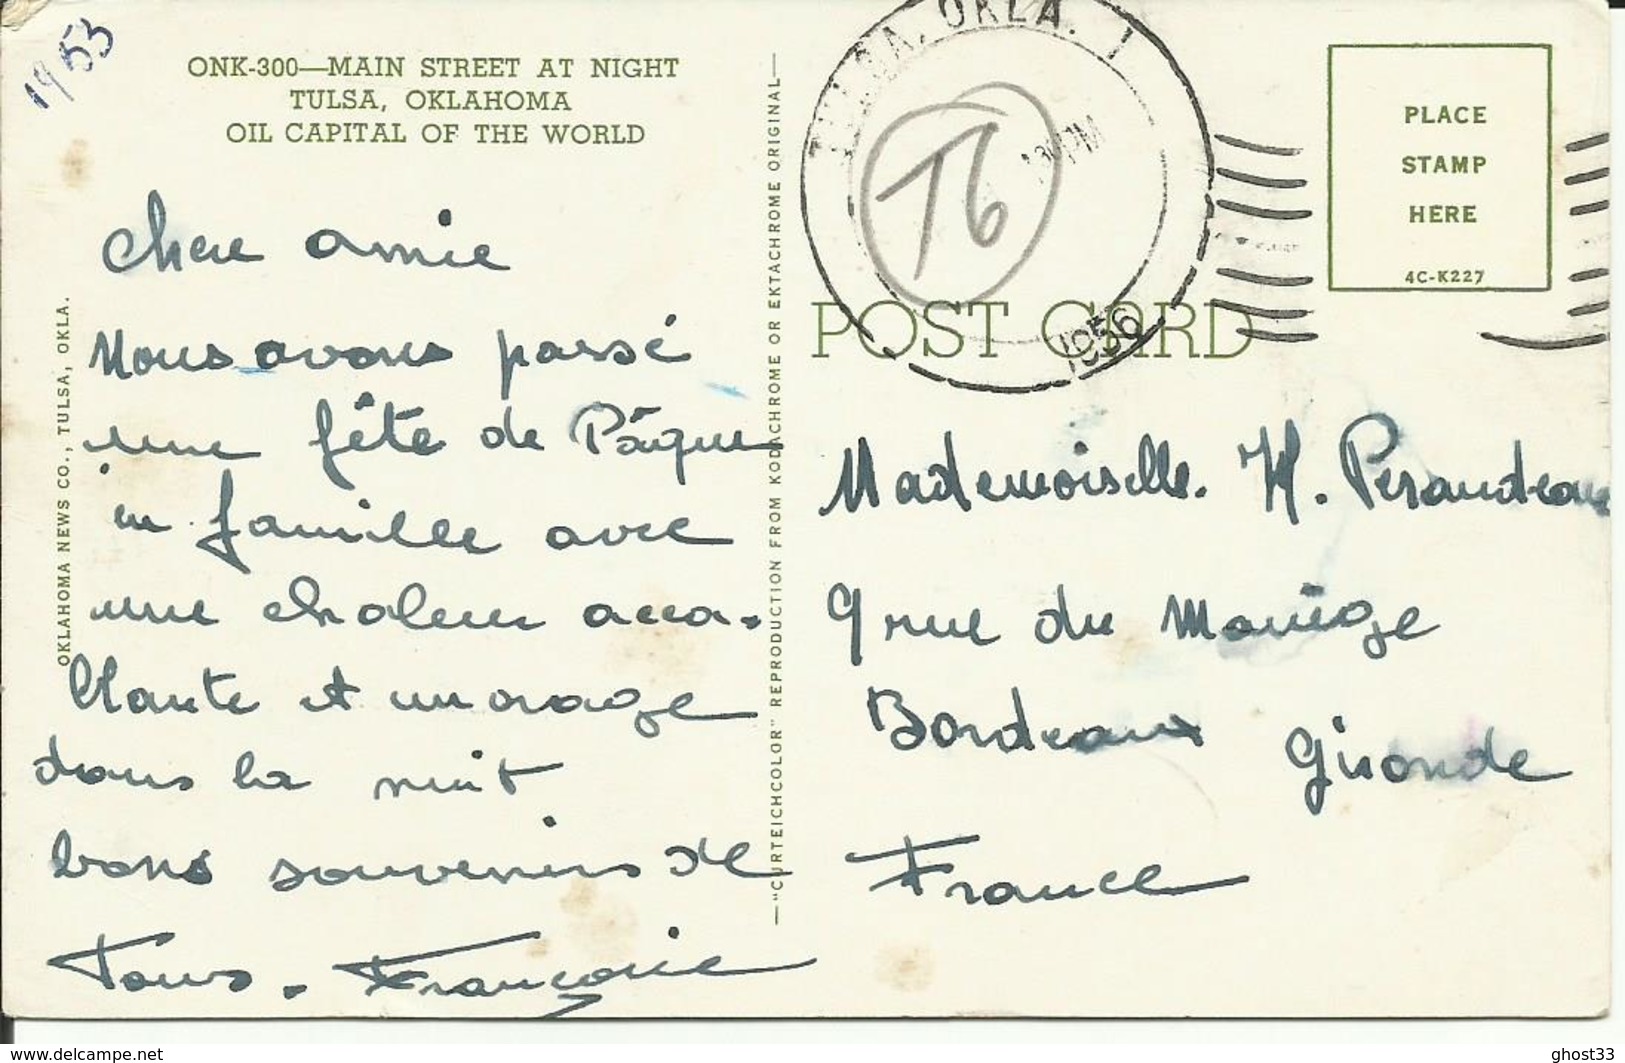 1953
ONK-300—MAIN STREET AT NIGHT
TULSA, OKLAHOMA
OIL CAPITAL OF THE WORLD
Chere amie
Nous avons passé
une fête de Pâque
en famille avec
une chaleur acca-
blante et un orage
dans la nuit
bons souvenirs de
Tous. Françoise
OKLAHOMA NEWS CO., TULSA, OKLA.
—"CURTEICHCOLOR" REPRODUCTION FROM KODACHROME OR EKTACHROME ORIGINAL—
TULSA, OKLA. 1
30 PM
1956
T6
PLACE
STAMP
HERE
4C-K227
POST CARD
Mademoiselle. H. Peraudeau
9 rue du Manège
Bordeaux Gironde
France
www.delcampe.net
ghost33